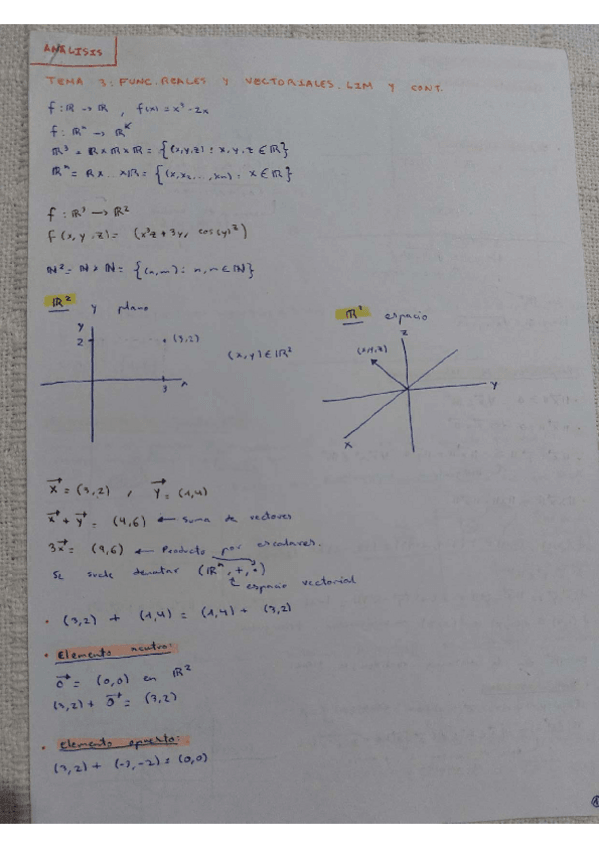 ANÁLISIS
TEMA 3: FUNC. REALES Y VECTORIALES. LIM Y CONT.
f: ℝ → ℝ , f(x) = x³ - 2x
f: ℝⁿ → ℝᵏ
ℝ³ = ℝ x ℝ x ℝ = {(x,y,z) : x, y, z ∈ ℝ}
ℝⁿ = ℝ x ... x ℝ = {(x, x₂, ..., xn) : x ∈ ℝ}
f: ℝ³ → ℝ²
f(x, y, z) = (x³z + 3y, cos(y)^z)
ℕ² = ℕ x ℕ = {(n,m) : n, m ∈ ℕ}
ℝ² y plano
ℝ³ espacio
y
2
(3,2)
3
x
(x,y) ∈ ℝ²
z
(x,y,z)
y
x
x⃗ = (3,2) , y⃗ = (1,4)
x⃗ + y⃗ = (4,6) ← Suma de vectores
3x⃗ = (9,6) ← Producto por escalares.
Se suele denotar (ℝⁿ, +, ·)
espacio vectorial
• (3,2) + (1,4) = (1,4) + (3,2)
• Elemento neutro:
0⃗ = (0,0) en ℝ²
(3,2) + 0⃗ = (3,2)
• Elemento opuesto:
(3,2) + (-3,-2) = (0,0)